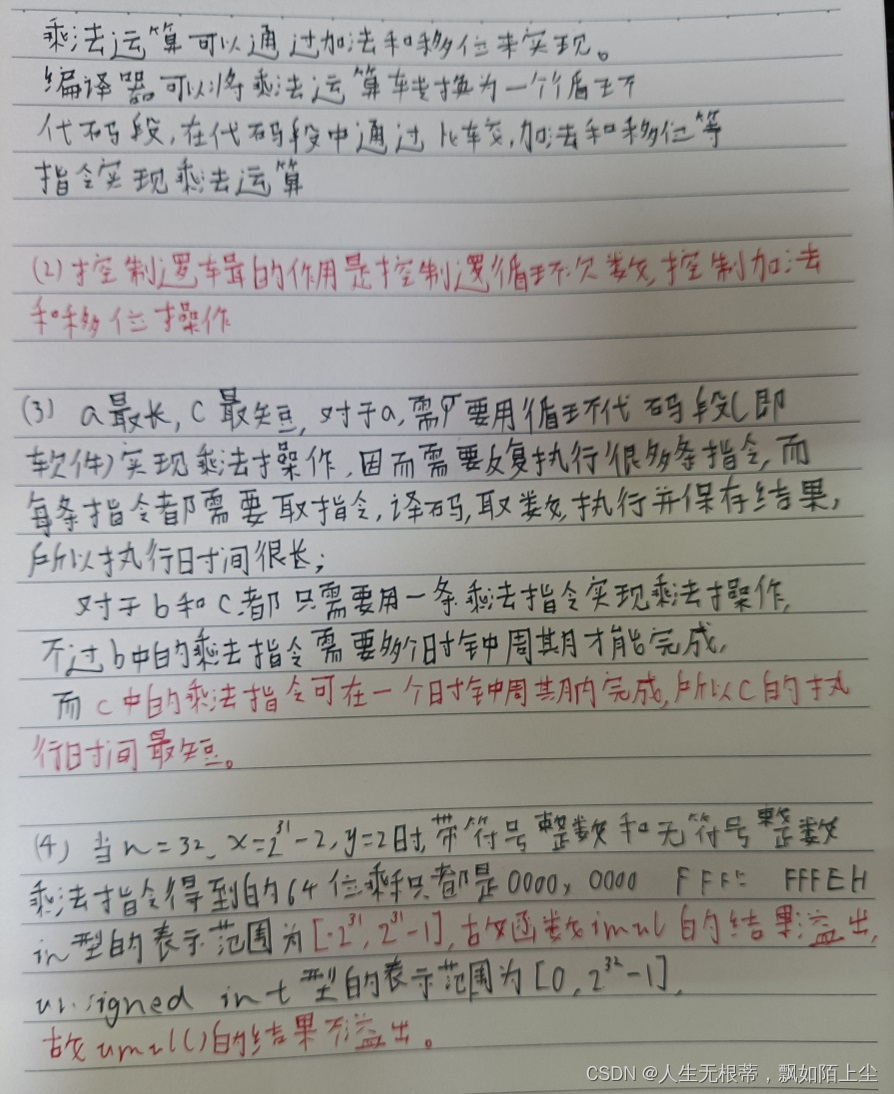 乘法运算可以通过加法和移位来实现。
编译器可以将乘法运算转换为一个循环
代码段,在代码段中通过比较,加法和移位等
指令实现乘法运算
(2)控制逻辑的作用是控制逻循环次数,控制加法
和移位操作
(3) a最长, c最短,对于a,需要用循环代码段(即
软件)实现乘法操作,因而需要反复执行很多条指令,而
每条指令都需要取指令,译码,取数,执行并保存结果,
所以执行时间很长;
对于b和c都只需要用一条乘法指令实现乘法操作,
不过b中的乘法指令需要多个时钟周期才能完成,
而c中的乘法指令可在一个时钟周期内完成,所以c的执
行时间最短。
(4) 当n=32、x=2^31-2,y=2时,带符号整数和无符号整数
乘法指令得到的64位乘积只都是0000, 0000 FFFF FFFEH
in型的表示范围为[-2^31, 2^31-1],故函数imul的结果溢出,
unsigned int型的表示范围为[0, 2^32-1],
故umul()的结果不溢出。
CSDN @人生无根蒂,飘如陌上尘